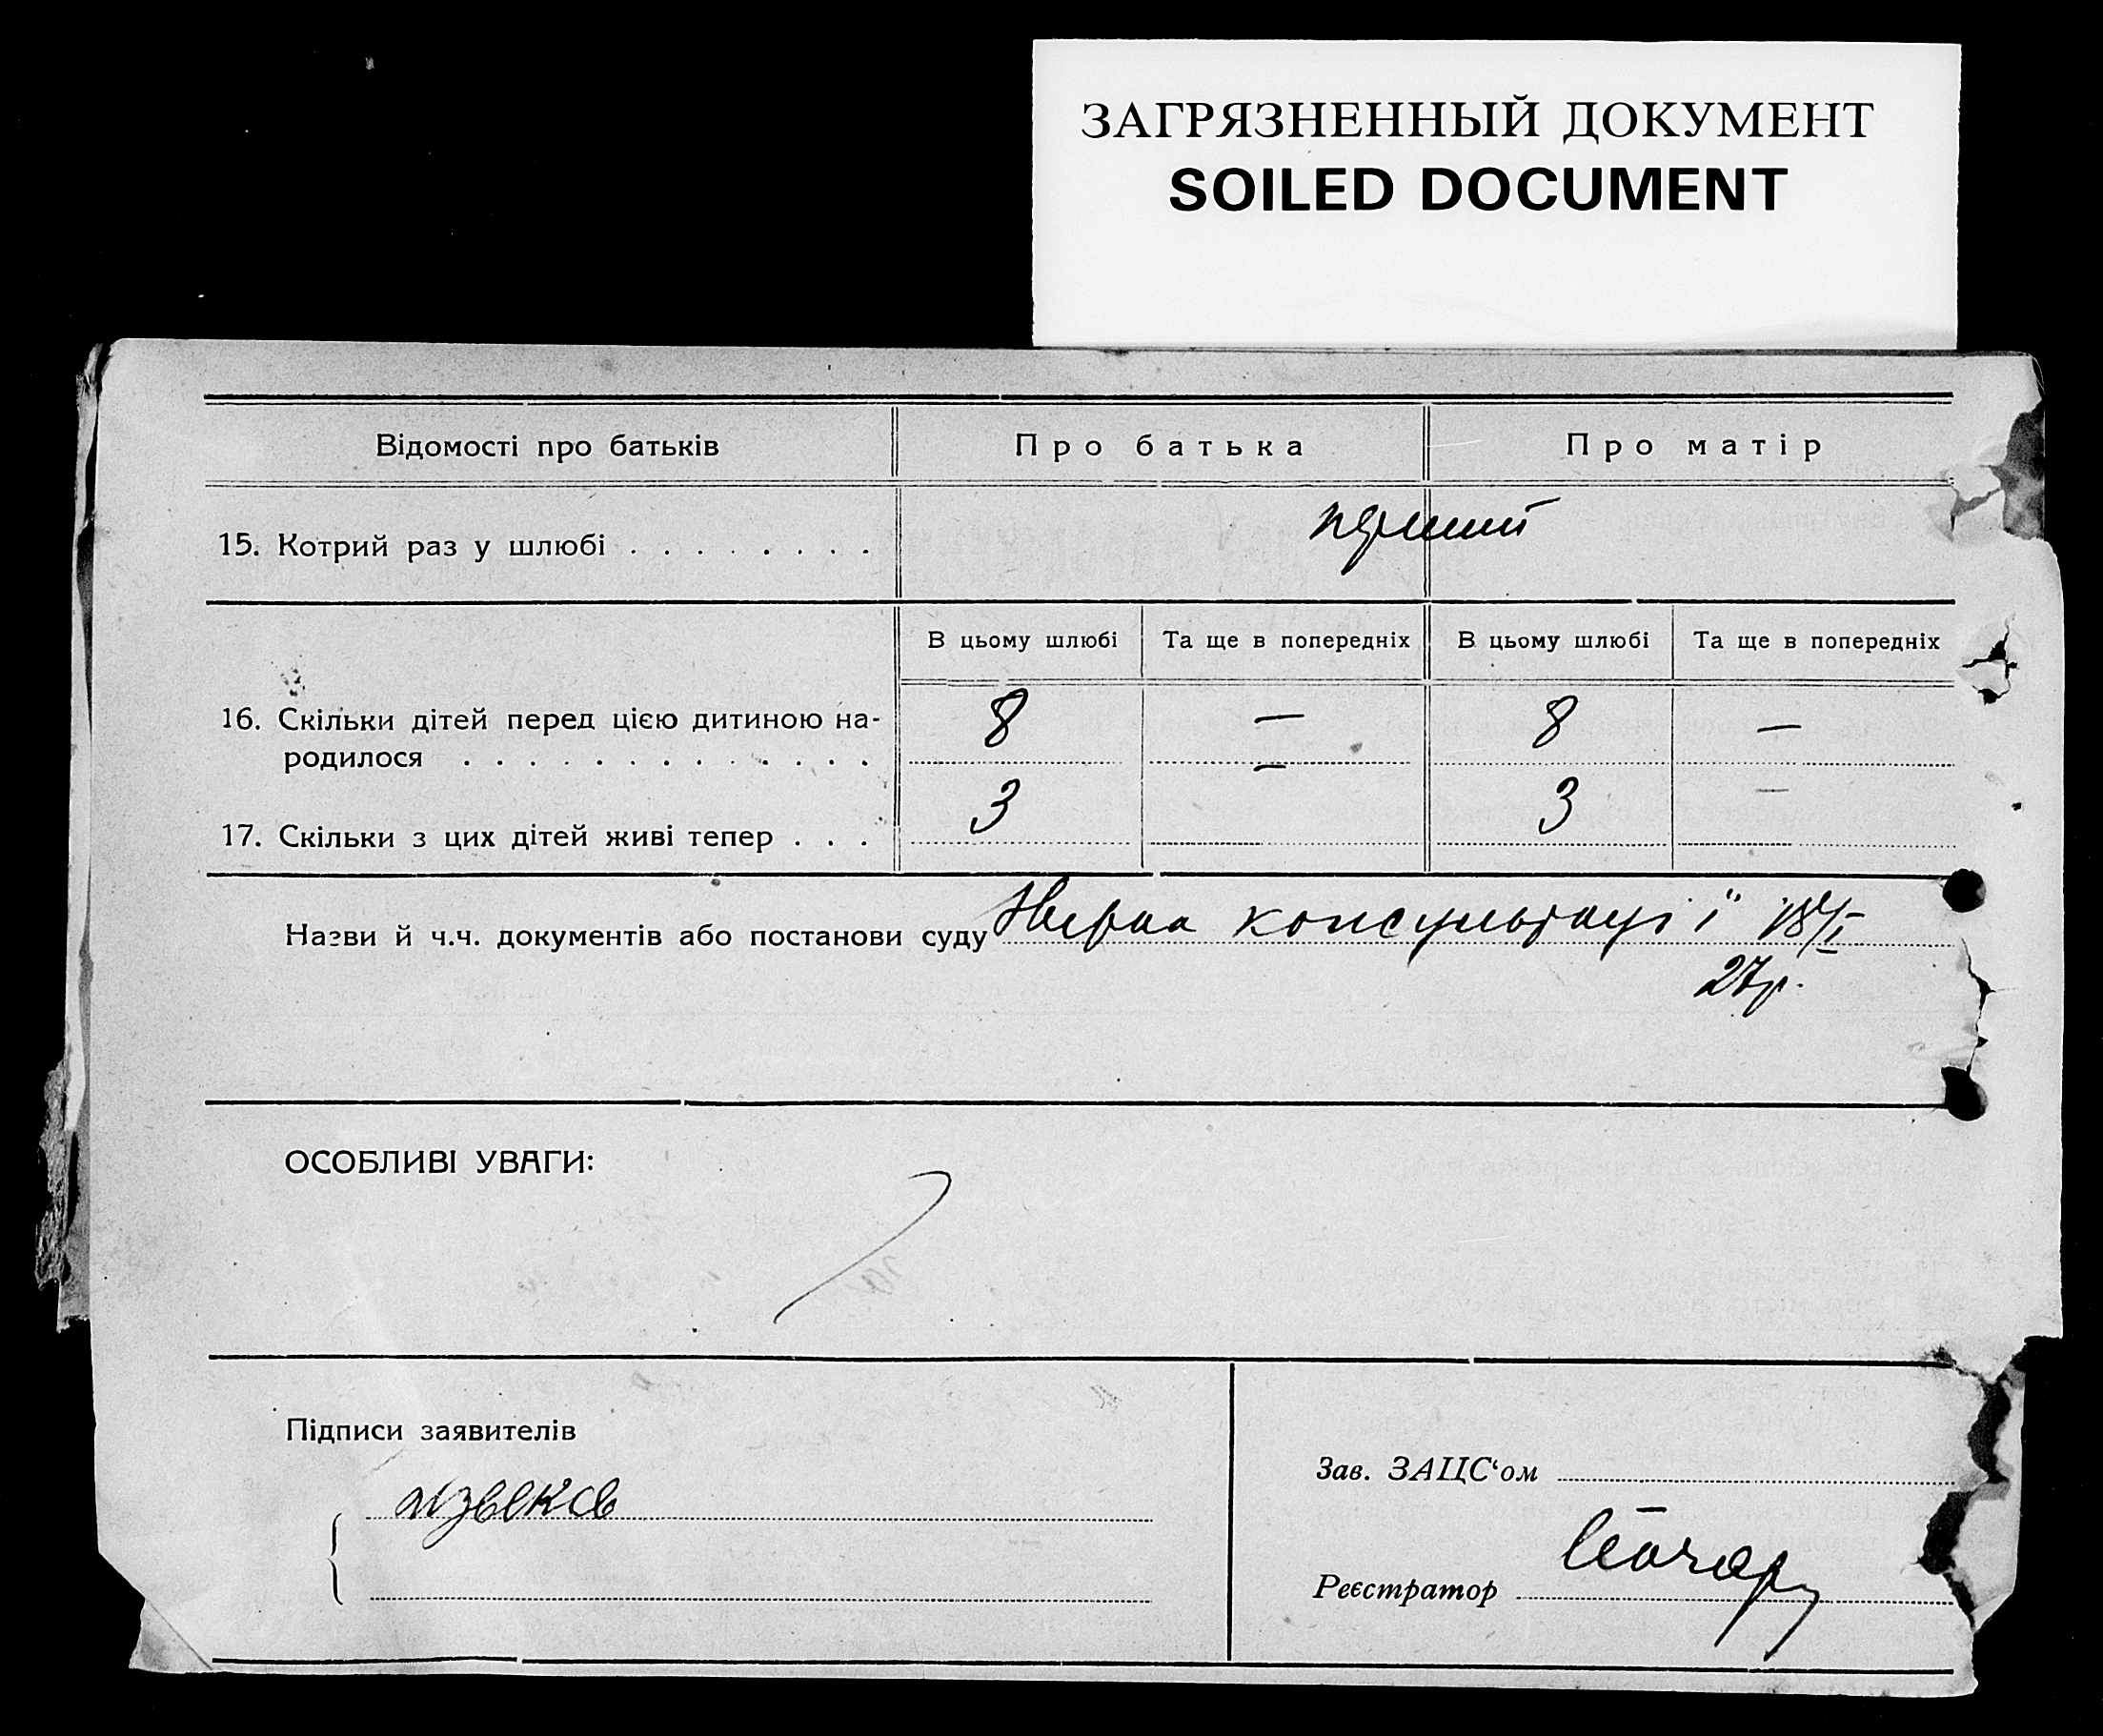 ЗАГРЯЗНЕННЫЙ ДОКУМЕНТ
SOILED DOCUMENT
Відомості про батьків Про батька Про матір
15. Котрий раз у шлюбі . . . . . . . . перший
В цьому шлюбі Та ще в попередніх В цьому шлюбі Та ще в попередніх
16. Скільки дітей перед цією дитиною на- 8 — 8 —
родилося . . . . . . . . . . . . .
17. Скільки з цих дітей живі тепер . . . 3 — 3 —
Назви й ч.ч. документів або постанови суду консультації 18/I
27р.
ОСОБЛИВІ УВАГИ:
Підписи заявителів
Зав. ЗАЦС‘ом
Реєстратор